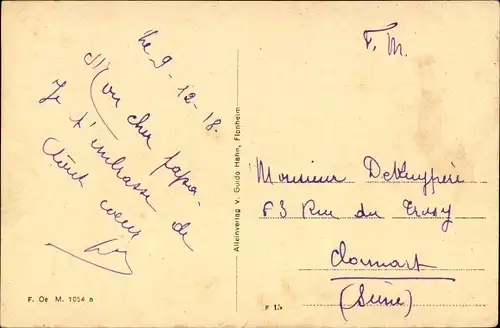 Le 9-12-18.
Mon cher papa.
Je t'embrasse de
tout coeur
F. M.
Monsieur DeKuypère
83 Rue du Trosy
Clamart
(Seine)
Alleinverlag V. Guido Hahn, Flonheim
F. Oe M. 1054 a
F 15